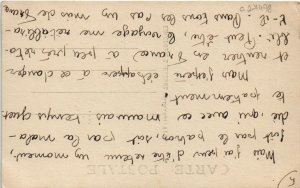 CARTE POSTALE
Mais j'ai peur d'être retenu un moment,
soit par le patron, soit par la mala-
die; qui avec ce mauvais temps guet-
te patiemment
Mais j'espère échapper à ce danger
et rentrer en France à peu près réta-
bli. Peut être, le voyage me rétablira-
t-il. Dans tous les cas un mas de